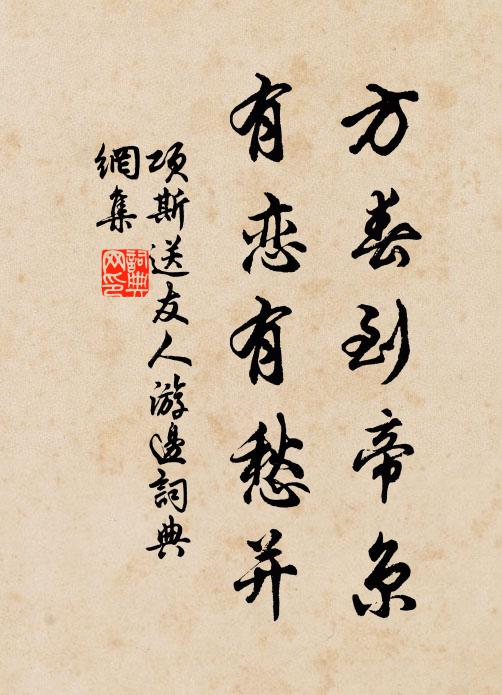 方春到帝京
有恋有愁并
项斯送友人游邊詞典
網集
詞典
网印